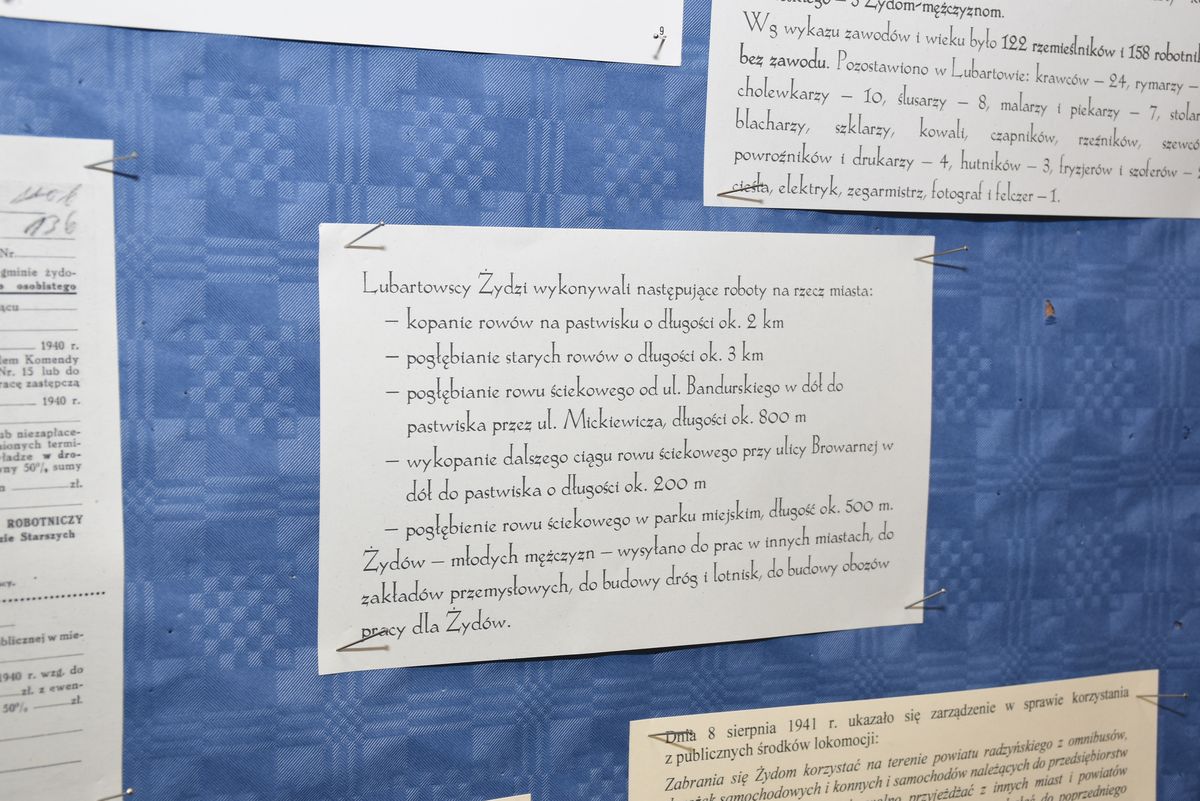 9
5 Żydom-mężczyznom.
Wg wykazu zawodów i wieku było 122 rzemieślników i 158
bez zawodu. Pozostawiono w Lubartowie: krawców – 24, rymarzy –
cholewkarzy – 10, ślusarzy – 8, malarzy i piekarzy – 7,
blacharzy, szklarzy, kowali, czapników, rzeźników,
powroźników i drukarzy – 4, hutników – 3, fryzjerów i szoferów –
cieśla, elektryk, zegarmistrz, fotograf i felczer – 1.
136
Nr.
gminie żydo-
osobistego
1940 r.
Komendy
Nr. 15 lub do
zastępczą
1940 r.
niezapłace-
termi-
w dro-
50%, sumy
zł.
ROBOTNICZY
Starszych
w mie-
1940 r. wzg. do
zł. z ewen-
50% zł.
Lubartowscy Żydzi wykonywali następujące roboty na rzecz miasta:
– kopanie rowów na pastwisku o długości ok. 2 km
– pogłębianie starych rowów o długości ok. 3 km
– pogłębianie rowu ściekowego od ul. Bandurskiego w dół do
pastwiska przez ul. Mickiewicza, długości ok. 800 m
– wykopanie dalszego ciągu rowu ściekowego przy ulicy Browarnej w
dół do pastwiska o długości ok. 200 m
– pogłębienie rowu ściekowego w parku miejskim, długość ok. 500 m.
Żydów – młodych mężczyzn – wysyłano do prac w innych miastach, do
zakładów przemysłowych, do budowy dróg i lotnisk, do budowy obozów
pracy dla Żydów.
Dnia 8 sierpnia 1941 r. ukazało się zarządzenie w sprawie korzystania
z publicznych środków lokomocji:
Zabrania się Żydom korzystać na terenie powiatu radzyńskiego z omnibusów,
samochodowych i konnych i samochodów należących do przedsiębiorstw
przyjeżdżać z innych miast i powiatów
do poprzedniego